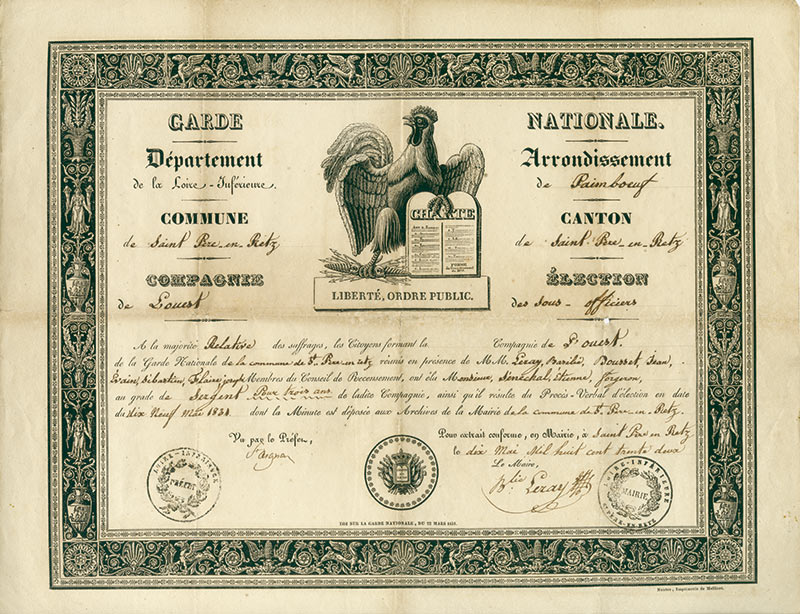 GARDE NATIONALE.
Département
de la Loire-Inférieure.
Arrondissement
de Paimboeuf
COMMUNE
de Saint Père-en-Retz
CANTON
de Saint-Père-en-Retz
COMPAGNIE
de Louest
ÉLECTION
des Sous-officiers
CHARTE
LIBERTÉ, ORDRE PUBLIC.
A la majorité Relative des suffrages, les Citoyens formant la Compagnie de l'ouest.
de la Garde Nationale de la commune de St. Père-en-retz réunis en présence de MM. Leray, Basile, Bousset, Jean,
Sébastien, Membres du Conseil de Recensement, ont élu Monsieur Sénéchal, Etienne, forgeron,
au grade de Sergent Pour trois ans de ladite Compagnie, ainsi qu'il résulte du Procès-Verbal d'élection en date
du dix Neuf Mai 1831. dont la Minute est déposée aux Archives de la Mairie de la commune de St. Père-en-Retz.
Vu par le Préfet,
Pour extrait conforme, en Mairie, à Saint Père en Retz
le dix Mai Mil huit cent trente deux
Le Maire,
Leray
LOIRE-INFÉRIEURE
PRÉFET
LOIRE-INFÉRIEURE
MAIRIE
LOI SUR LA GARDE NATIONALE, DU 22 MARS 1831.
Nantes, Imprimerie de Mellinet.